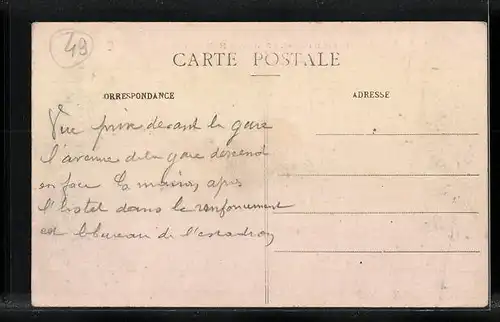 49
CARTE POSTALE
CORRESPONDANCE
ADRESSE
Vue prise devant la gare
l'avenue de la gare descend
en face la maison après
l'hotel dans le renfoncement
est le bureau de l'escadron